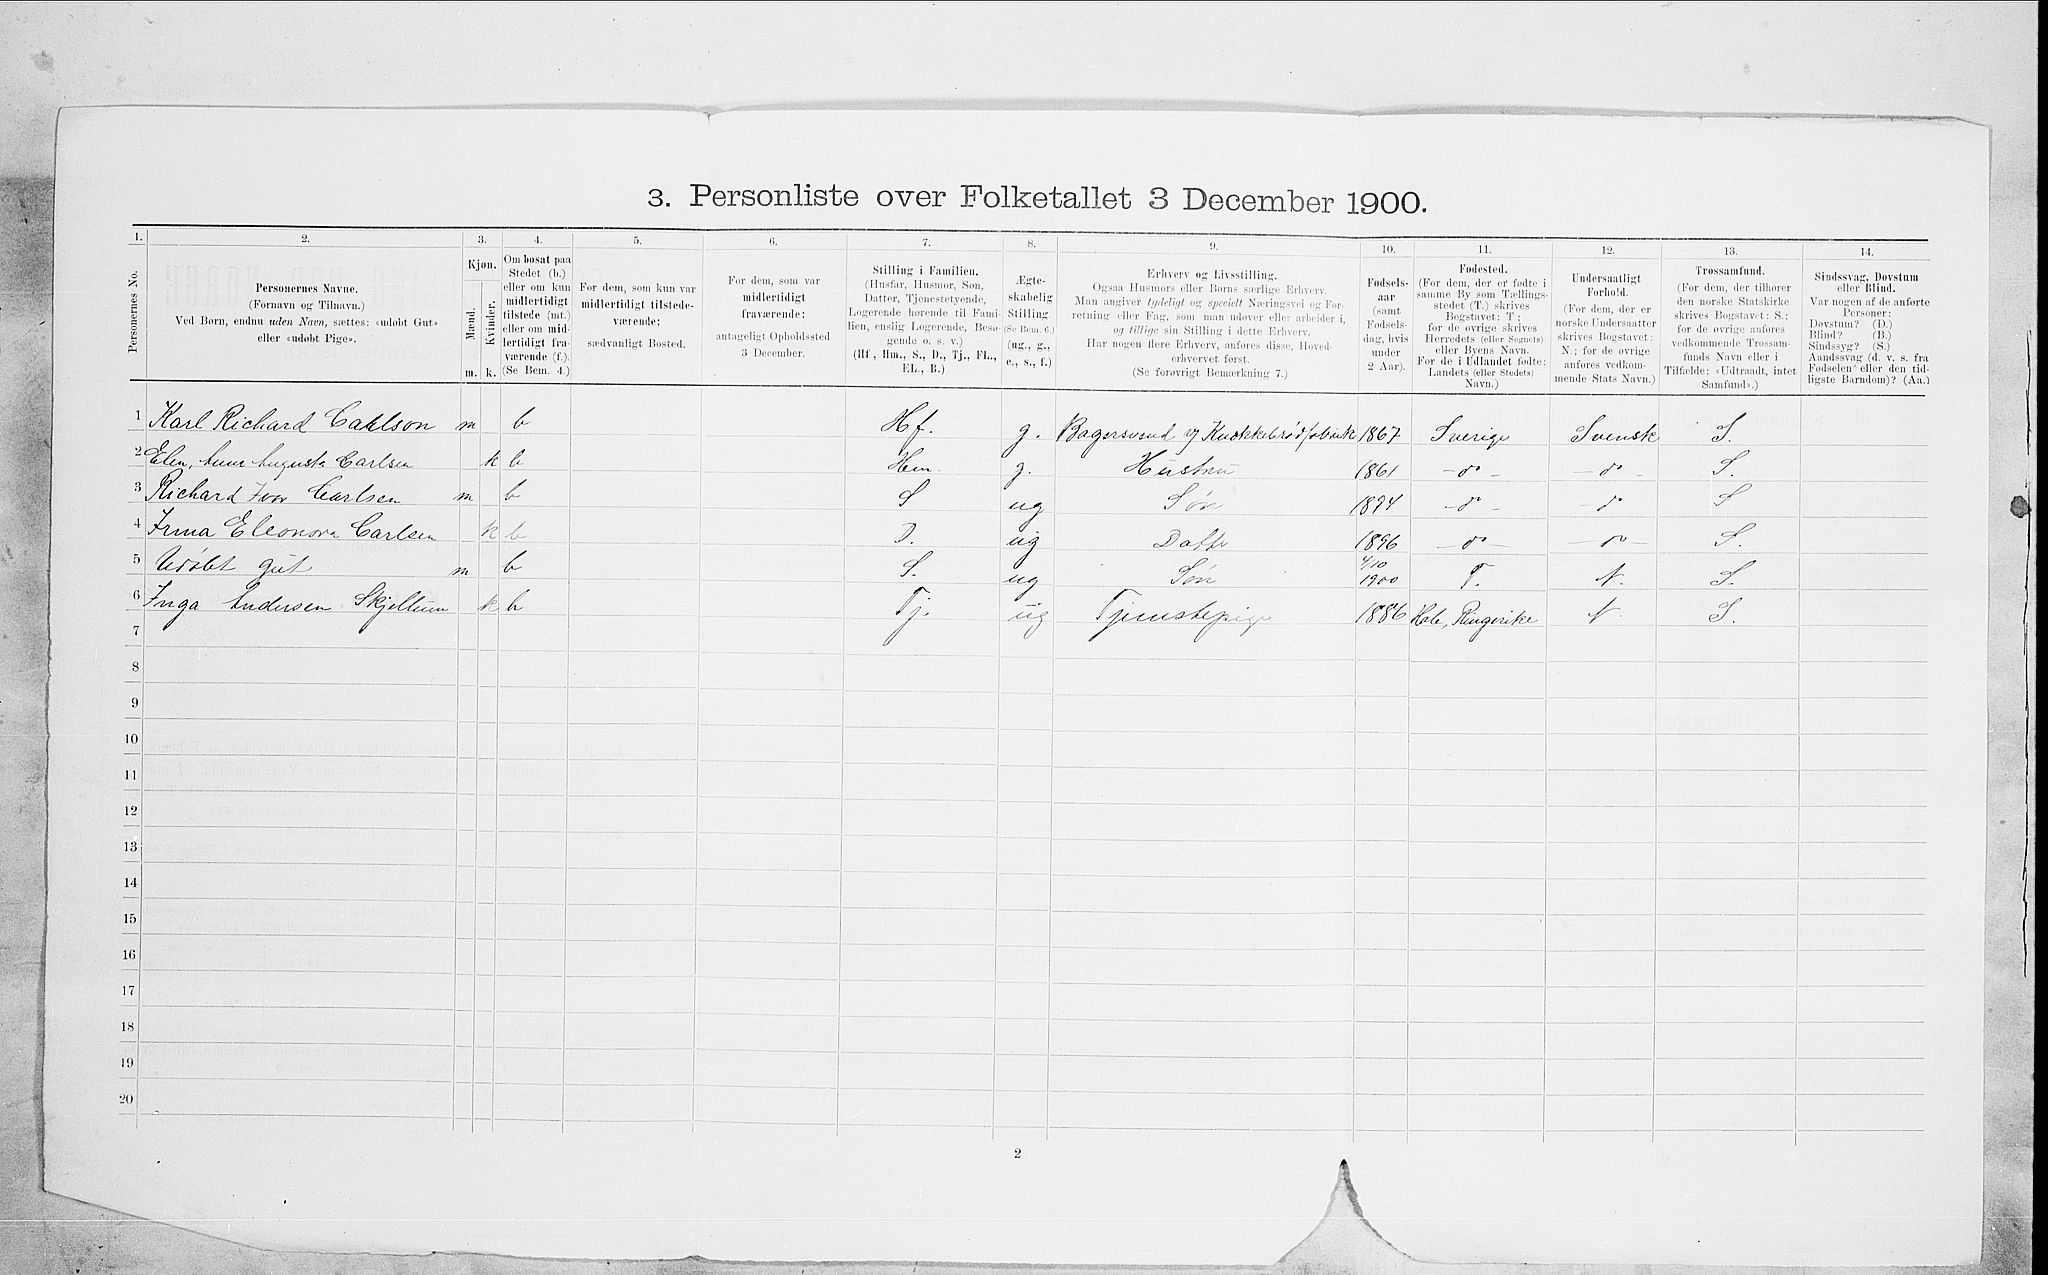 3. Personliste over Folketallet 3 December 1900.
1. 2. 3. 4. 5. 6. 7. 8. 9. 10. 11. 12. 13. 14.
Personernes No.
Personernes Navne.
(Fornavn og Tilnavn.)
Ved Børn, endnu uden Navn, sættes: «udøbt Gut»
eller «udøbt Pige».
Kjøn.
Mænd.
Kvinder.
m. k.
Om bosat paa
Stedet (b.)
eller om kun
midlertidigt
tilstede (mt.)
eller om mid-
lertidigt fra-
værende (f.).
(Se Bem. 4.)
For dem, som kun var
midlertidigt tilstede-
værende:
sædvanligt Bosted.
For dem, som var
midlertidigt
fraværende:
antageligt Opholdssted
3 December.
Stilling i Familien.
(Husfar, Husmor, Søn,
Datter, Tjenestetyende,
Logerende hørende til Fami-
lien, enslig Logerende, Besø-
gende o. s. v.)
(Hf., Hm., S., D., Tj., FL.,
EL., B.)
Ægte-
skabelig
Stilling.
(Se Bem. 6.)
(ug., g.,
e., s., f.)
Erhverv og Livsstilling.
Ogsaa Husmors eller Børns særlige Erhverv.
Man angiver tydeligt og specielt Næringsvei og For-
retning eller Fag, som man udøver eller arbeider i,
og tillige sin Stilling i dette Erhverv.
Har nogen flere Erhverv, anføres disse, Hoved-
erhvervet først.
(Se forøvrigt Bemærkning 7.)
Fødsels-
aar
(samt
Fødsels-
dag, hvis
under
2 Aar).
Fødested.
(For dem, der er fødte i
samme By som Tællings-
stedet (T.) skrives
Bogstavet: T;
for de øvrige skrives
Herredets (eller Sognets)
eller Byens Navn.
For de i Udlandet fødte:
Landets (eller Stedets)
Navn.)
Undersaatligt
Forhold.
(For dem, der er
norske Undersaatter
skrives Bogstavet:
N.; for de øvrige
anføres vedkom-
mende Stats Navn.)
Trossamfund.
(For dem, der tilhører
den norske Statskirke
skrives Bogstavet: S.;
for de øvrige anføres
vedkommende Trossam-
funds Navn eller i
Tilfælde: «Udtraadt, intet
Samfund».)
Sindssvag, Døvstum
eller Blind.
Var nogen af de anførte
Personer:
Døvstum? (D.)
Blind? (B.)
Sindssyg? (S.)
Aandssvag (d. v. s. fra
Fødselen eller den tid-
ligste Barndom)? (Aa.)
1 Karl Richard Cahlson m b Hf. g. Bagersvend v/ Knækkebrødfabrik 1867 Sverige Svensk S.
2 Elen, Anna Augusta Carlsen k b Hm. g. Hustru 1861 - do - - do - S.
3 Richard Ivar Carlsen m b S ug Søn 1894 - do - - do S
4 Irma Eleonora Carlsen k b D. ug Datte 1896 - do - - do - S.
5 Udøbt gut m b S. ug Søn 4/10 1900 T. N. S.
6 Inga Andersen Skjellum k b Tj. ug Tjenstepige 1886 Hole, Ringerike N. S.
7
8
9
10
11
12
13
14
15
16
17
18
19
20
2